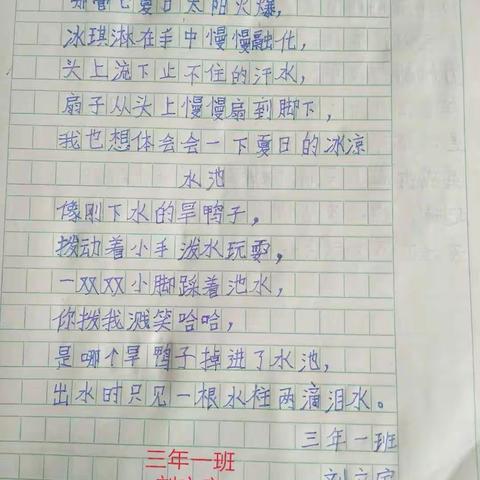 夏日太阳火爆，
冰琪淋在手中慢慢融化，
头上流下止不住的汗水，
扇子从头上慢慢扇到脚下，
我也想体会会一下夏日的冰凉
水池
像刚下水的旱鸭子，
拨动着小手泼水玩耍，
一双双小脚踩着池水，
你拨我溅笑哈哈，
是哪个旱鸭子掉进了水池，
出水时只见一根水柱两滴泪水。
三年一班
三年一班